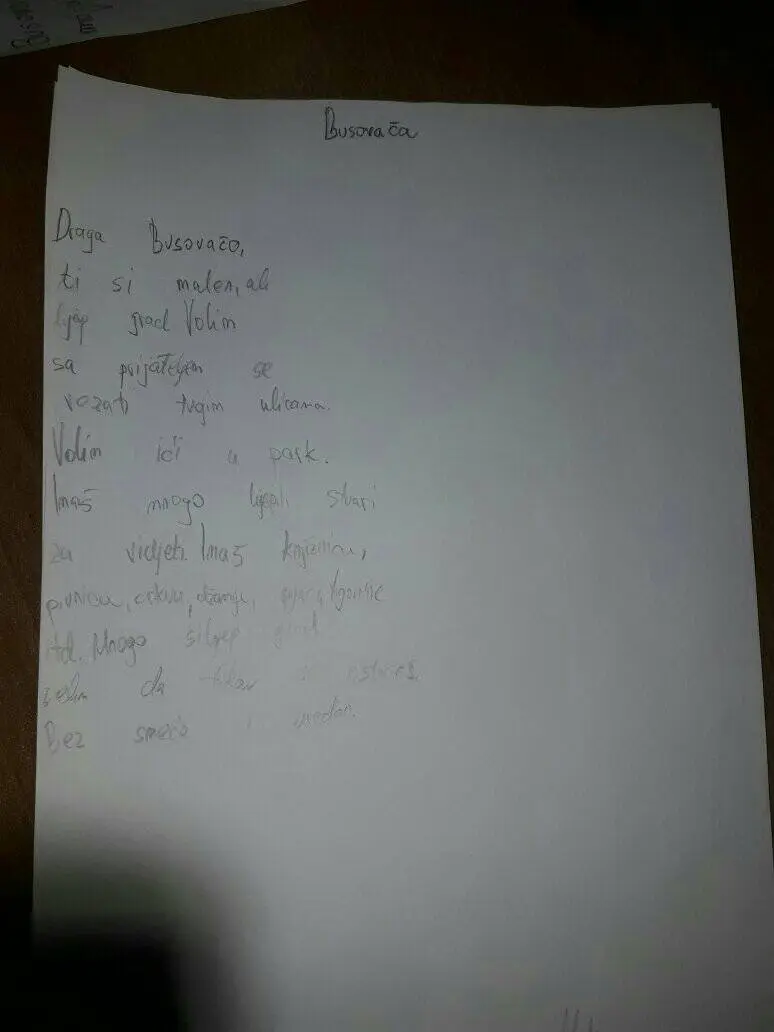 Busovača
Draga Busovačo,
ti si malen, ali
lijep grad Volim
sa prijateljem se
vozati tvojim ulicama.
Volim ići u park.
Imaš mnogo lijepih stvari
za vidjeti. Imaš knjižnicu,
pivnicu, crkvu, džamiju,
itd. Mnogo si lijep grad
želim da
Bez smeća uredan.